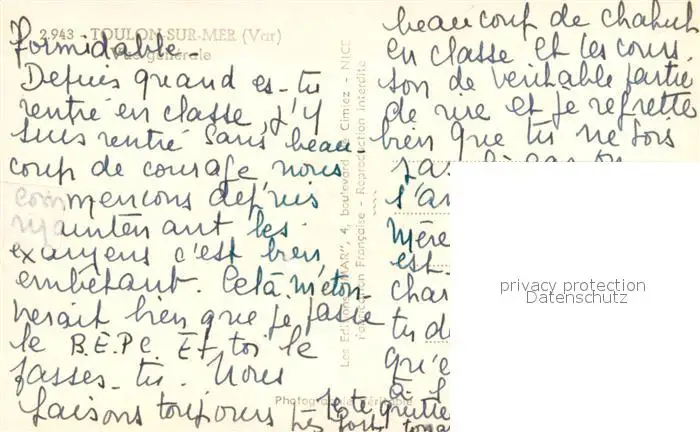 2.943 - TOULON-SUR-MER (Var)
Vue générale
formidable -
Depuis quand es-tu
rentré en classe, j'y
suis rentré sans beau
coup de courage nous
commencons depuis
maintenant les
examens c'est bien
embêtant. Celà m'éton
nerait bien que je passe
le B.E.P.C. Et toi le
passes-tu. Nous
faisons toujours
beaucoup de chahut
en classe et les cours
son de véritable partie
de rire et je regrette
bien que tu ne sois
mère
est
char
tu
qu'e
à
Je te quitte
très fort
Les Editions "MAR", 4, boulevard de Cimiez - NICE
Fabrication Française - Reproduction Interdite
Photographie Véritable
privacy protection
Datenschutz